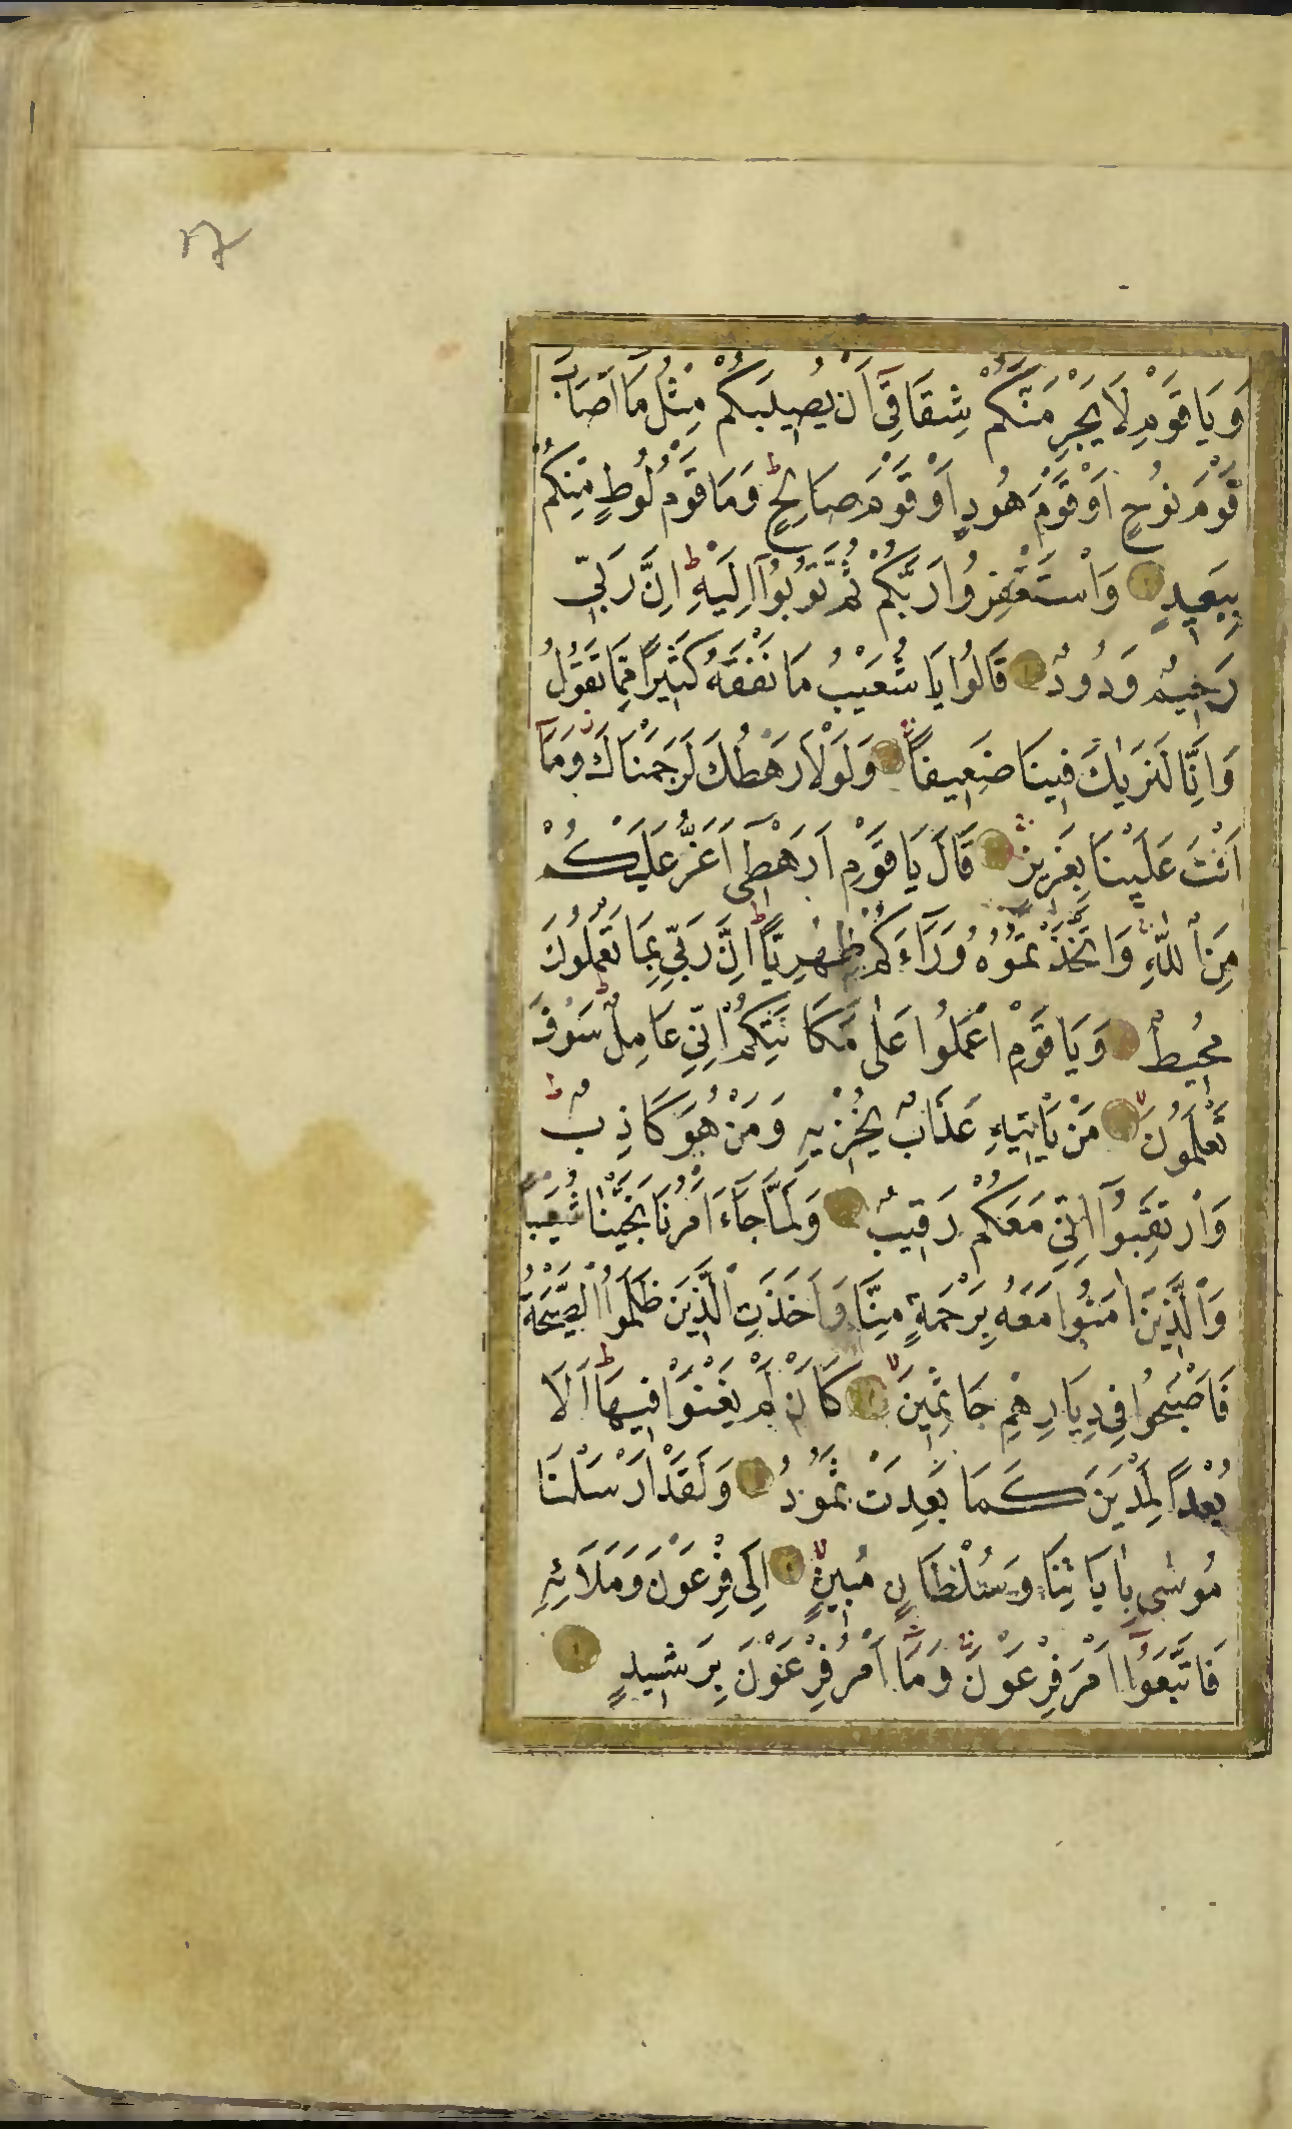 وَيَا قَوْمِ لَا يَجْرِمَنَّكُمْ شِقَاقِي أَنْ يُصِيبَكُمْ مِثْلُ مَا أَصَابَ
قَوْمَ نُوحٍ أَوْ قَوْمَ هُودٍ أَوْ قَوْمَ صَالِحٍ ط وَمَا قَوْمُ لُوطٍ مِنْكُمْ
بِبَعِيدٍ وَاسْتَغْفِرُوا رَبَّكُمْ ثُمَّ تُوبُوا إِلَيْهِ ط إِنَّ رَبِّي
رَحِيمٌ وَدُودٌ قَالُوا يَا شُعَيْبُ مَا نَفْقَهُ كَثِيرًا مِمَّا تَقُولُ
وَإِنَّا لَنَرٰيكَ فِينَا ضَعِيفًا وَلَوْلَا رَهْطُكَ لَرَجَمْنَاكَ وَمَا
أَنْتَ عَلَيْنَا بِعَزِيزٍ قَالَ يَا قَوْمِ أَرَهْطِي أَعَزُّ عَلَيْكُمْ
مِنَ اللّٰهِ وَاتَّخَذْتُمُوهُ وَرَاءَكُمْ ظِهْرِيًّا ط إِنَّ رَبِّي بِمَا تَعْمَلُونَ
مُحِيطٌ وَيَا قَوْمِ اعْمَلُوا عَلٰى مَكَانَتِكُمْ إِنِّي عَامِلٌ ط سَوْفَ
تَعْلَمُونَ مَنْ يَأْتِيهِ عَذَابٌ يُخْزِيهِ وَمَنْ هُوَ كَاذِبٌ ط
وَارْتَقِبُوا إِنِّي مَعَكُمْ رَقِيبٌ وَلَمَّا جَاءَ أَمْرُنَا نَجَّيْنَا شُعَيْبًا
وَالَّذِينَ اٰمَنُوا مَعَهُ بِرَحْمَةٍ مِنَّا وَأَخَذَتِ الَّذِينَ ظَلَمُوا الصَّيْحَةُ
فَأَصْبَحُوا فِي دِيَارِهِمْ جَاثِمِينَ كَأَنْ لَمْ يَغْنَوْا فِيهَا ط أَلَا
بُعْدًا لِمَدْيَنَ كَمَا بَعِدَتْ ثَمُودُ وَلَقَدْ أَرْسَلْنَا
مُوسٰى بِاٰيَاتِنَا وَسُلْطَانٍ مُبِينٍ إِلٰى فِرْعَوْنَ وَمَلَائِهِ
فَاتَّبَعُوا أَمْرَ فِرْعَوْنَ وَمَا أَمْرُ فِرْعَوْنَ بِرَشِيدٍ